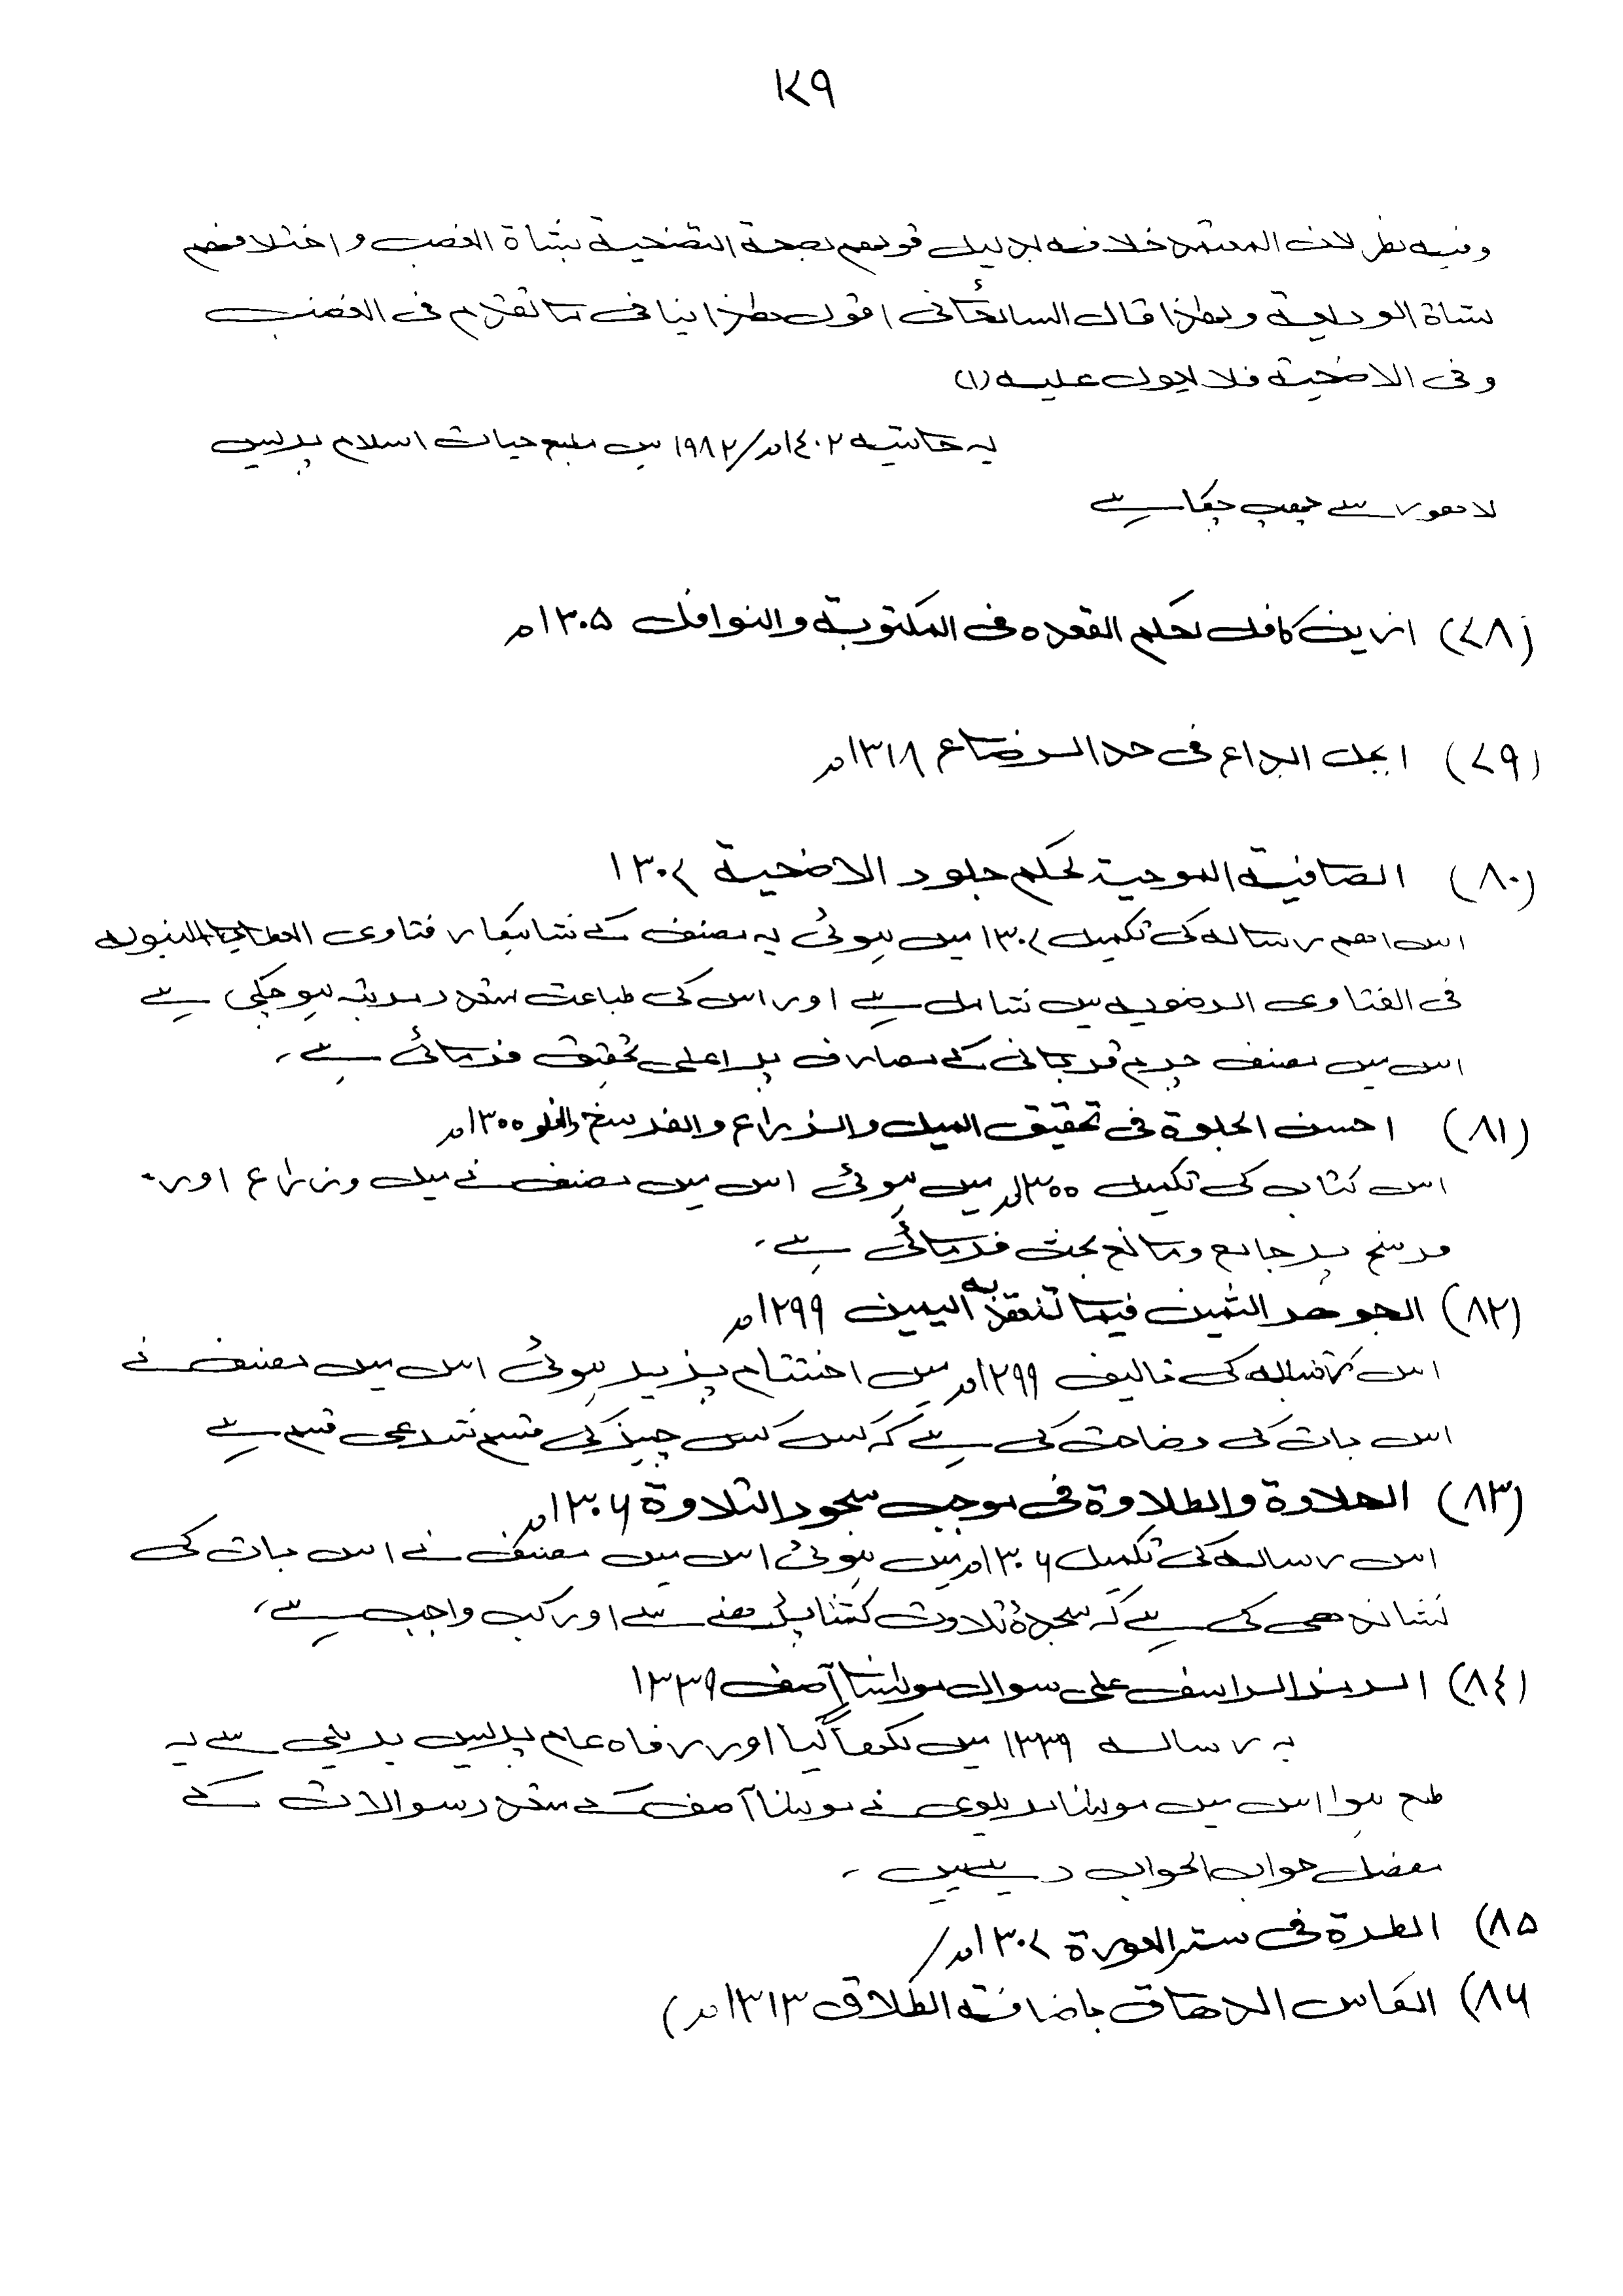 ۱۷۹
وفیہ نظر لان المعتمد خلافہ بدلیل قولھم بصحۃ التضحیۃ بشاۃ الغصب واختلافھم
بشاۃ الودیعۃ ولھذا قال السائحانی اقول ھذا ینافی ما تقدم فی الغصب
وفی الاضحیۃ فلا یعول علیہ (۱)
یہ حاشیہ ۱٤۰۲ھ/۱۹۸۲ میں مطبع حیات اسلام پریس
لاھور سے چھپ چکا ہے
(۷۸) ازین کافل لحکم القعدہ فی المکتوبۃ والنوافل ۱۳۰۵ھ
(۷۹) اجل ابداع فی حد الرضاع ۱۳۱۸ھ
(۸۰) الصافیۃ الموحیۃ لحکم جلود الاضحیۃ ۱۳۰۷
اس اھم رسالہ کی تکمیل ۱۳۰۷ میں ہوئی یہ مصنف کے شاہکار فتاوی العطایا النبویہ
فی الفتاوی الرضویہ میں شامل ہے اور اس کی طباعت متعدد مرتبہ ہو چکی ہے
اس میں مصنف چرم قربانی کے مصارف پر اعلی تحقیق فرمائی ہے۔
(۸۱) احسن الجلوۃ فی تحقیق المیل والذراع والفرسخ والغلو ۱۳۰۰ھ
اس کتاب کی تکمیل ۱۳۰۰ھ میں ہوئی اس میں مصنف نے میل وزراع اور
فرسخ پر جامع ومانع بحث فرمائی ہے۔
(۸۲) الجوھر الثمین فیما تنعقد بہ الیمین ۱۲۹۹ھ
اس رسالہ کی تالیف ۱۲۹۹ھ میں اختتام پذیر ہوئی اس میں مصنف نے
اس بات کی وضاحت کی ہے کہ کس کس چیز کی قسم شرعی قسم ہے
(۸۳) الحلاوۃ والطلاوۃ فی موجب سجود التلاوۃ ۱۳۰۶ھ
اس رسالہ کی تکمیل ۱۳۰۶ھ میں ہوئی اس میں مصنف نے اس بات کی
نشاندھی کی ہے کہ سجدۂ تلاوت کتنا پڑھنے سے اور کب واجب ہے،
(۸٤) الرمز المراصف علی سوال مولٰنا آصف ۱۳۳۹
یہ رسالہ ۱۳۳۹ میں لکھا گیا اور رفاہ عام پریس بریلی سے یہ
طبع ہوا اس میں مولٰنا بریلوی نے مولٰنا آصف کے متعدد سوالات کے
مفصل جواب الجواب دیے ہیں۔
۸۵) الطرۃ فی ستر العورۃ ۱۳۰۷ھ/
۸۶) الکاس الدھاق باضافۃ الطلاق ۱۳۱۳ھ)